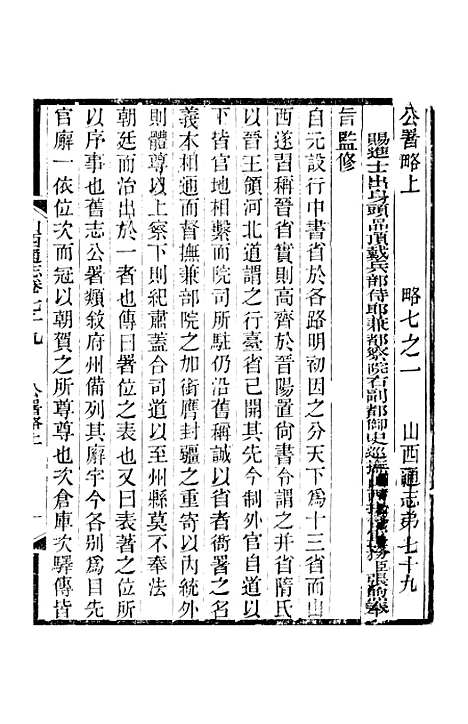 公署略上　略七之一　山西通志第七十九
賜進士出身頭品頂戴兵部侍郎兼都察院右副都御史巡撫山西提督鹽務臣張煦奉
旨監修
自元設行中書省於各路明初因之分天下爲十三省而山
西遂習稱晉省實則北齊於晉陽置尚書令謂之并省隋氏
以晉王領河北道謂之行臺省已開其先今制外官自道以
下皆官地相繫而院司所駐仍沿舊稱誠以省者衙署之名
義本相通而督撫兼部院之加銜膺封疆之重寄以內統外
則體尊以上察下則紀肅蓋合司道以至州縣莫不奉法
朝廷而治出於一者也傳曰署位之表也又曰表著之位所
以序事也舊志公署類敘府州備列其廨宇今各別爲目先
官廨一依位次而冠以朝賀之所尊尊也次倉庫次驛傳皆
山西通志卷七十九　公署略上　一